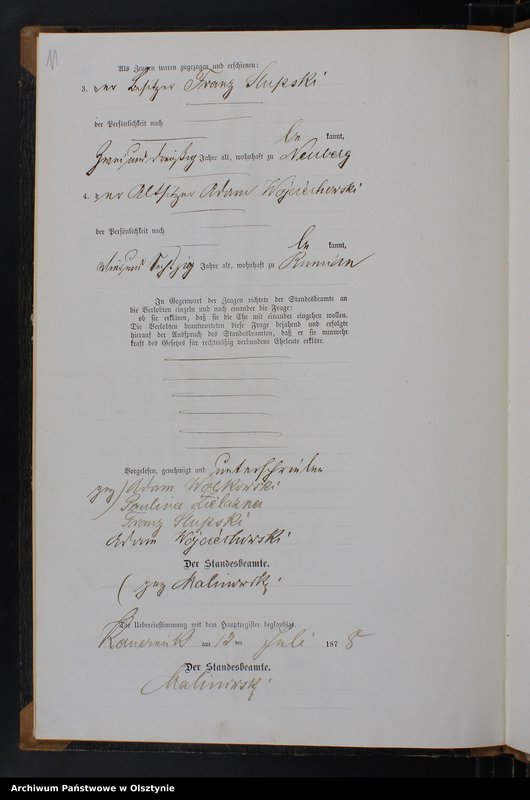 11
Als Zeugen waren zugezogen und erschienen:
3. der Besitzer Franz Slupski
der Persönlichkeit nach
be kannt,
und dreißig Jahre alt, wohnhaft zu Neuberg
4. der Altsitzer Adam Wojciechowski
der Persönlichkeit nach
be kannt,
und sechszig Jahre alt, wohnhaft zu Rumian
In Gegenwart der Zeugen richtete der Standesbeamte an
die Verlobten einzeln und nach einander die Frage:
ob sie erklären, daß sie die Ehe mit einander eingehen wollen.
Die Verlobten beantworteten diese Frage bejahend und erfolgte
hierauf der Ausspruch des Standesbeamten, daß er sie nunmehr
kraft des Gesetzes für rechtmäßig verbundene Eheleute erkläre.
Vorgelesen, genehmigt und unterschrieben
gez) Adam Wolkowski
Paulina Zielazna
Franz Slupski
Adam Wojciechowski
Der Standesbeamte.
(gez Malinowski
Die Uebereinstimmung mit dem Hauptregister beglaubigt.
Kauernik am 13 ten Juli 187 8
Der Standesbeamte.
Malinowski
Archiwum Państwowe w Olsztynie